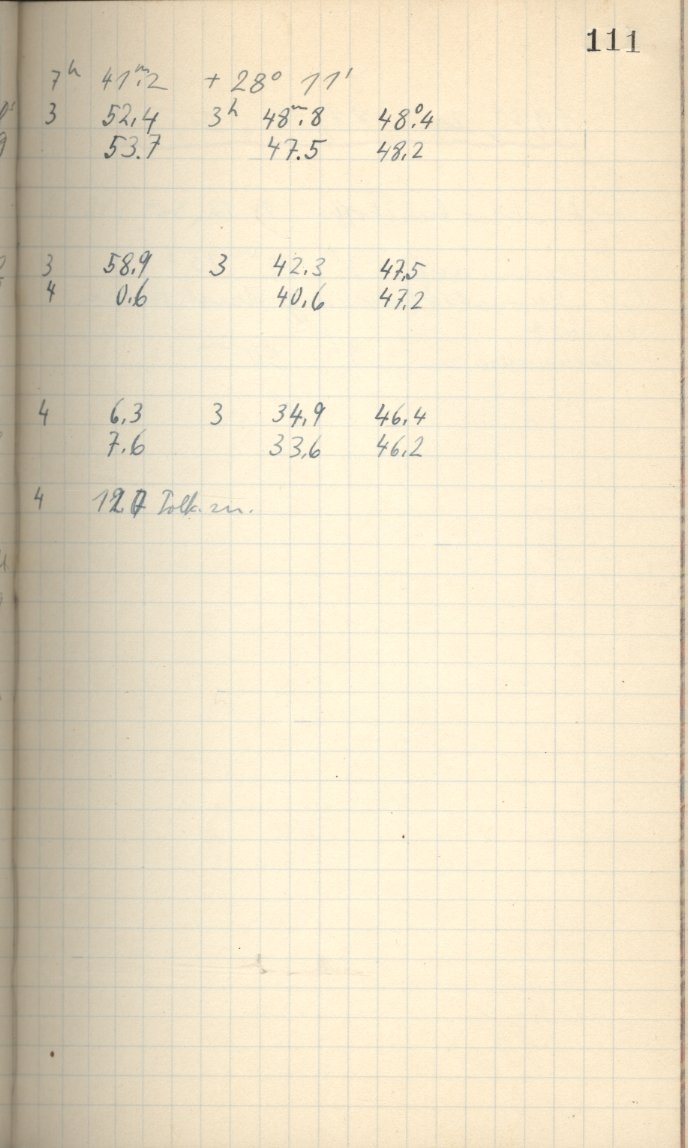 111
7ʰ 41ᵐ.2 + 28° 11'
3 52.4 3ʰ 48ᵐ.8 48°.4
53.7 47.5 48.2
3 58.9 3 42.3 47.5
4 0.6 40.6 47.2
4 6.3 3 34.9 46.4
7.6 33.6 46.2
4